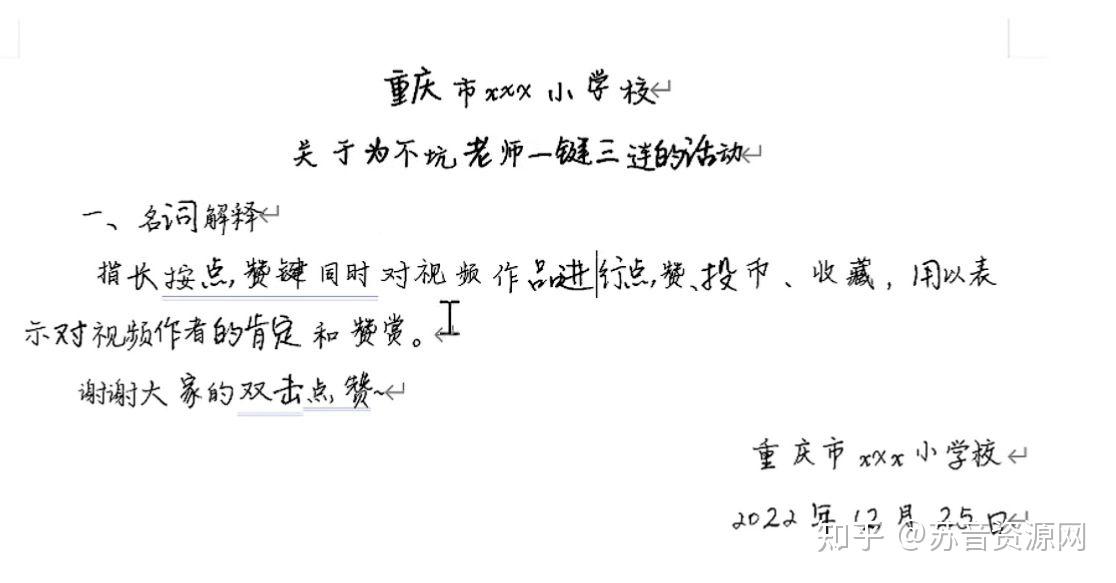 重庆市xxx小学校
关于为不坑老师一键三连的活动
一、名词解释
指长按点赞键同时对视频作品进行点赞、投币、收藏，用以表
示对视频作者的肯定和赞赏。
谢谢大家的双击点赞~
重庆市xxx小学校
2022年12月25日
知乎 @苏音资源网